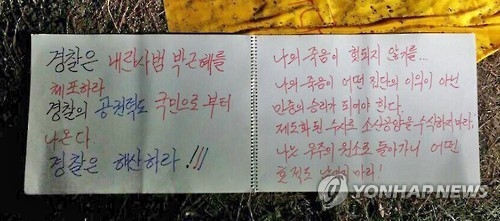 경찰은 내란사범 박근혜를
체포하라
경찰의 공권력도 국민으로부터
나온다
경찰은 해산하라!!!
나의 죽음이 헛되지 않기를...
나의 죽음이 어떤 집단의 이익이 아닌
민중의 승리가 되어야 한다.
제도화된 수사로 소신공양을 수식하지 마라,
나는 우주의 원소로 돌아가니 어떤
흔적도 남기지 마라!
YONHAPNEWS